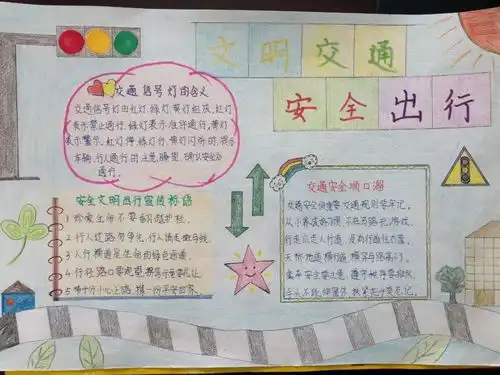 文明交通
安全出行
交通信号灯的含义
交通信号灯由红灯、绿灯、黄灯组成,红灯
表示禁止通行,绿灯表示准许通行,黄灯
表示警示。红灯停,绿灯行,黄灯闪
车辆、行人通行时注意、瞭望,确认安全后
通行。
安全文明出行宣传标语
1 珍爱生命不要翻越护栏。
2 行人过路勿争先,行人请走斑马线
3 人行横道是生命的绿色通道。
4 行经路口要减速,
5 带十分小心上路,携一份平安回家
交通安全顺口溜
交通安全很重要,交通规则要牢记,
从小养成好习惯,不在马路玩游戏。
行走应走人行道,没有行道往右靠,
天桥地道横行道,横穿马路离不了。
乘车安全要注意,遵守秩序要排队,
手头不能伸窗外,扶紧把手要牢记。